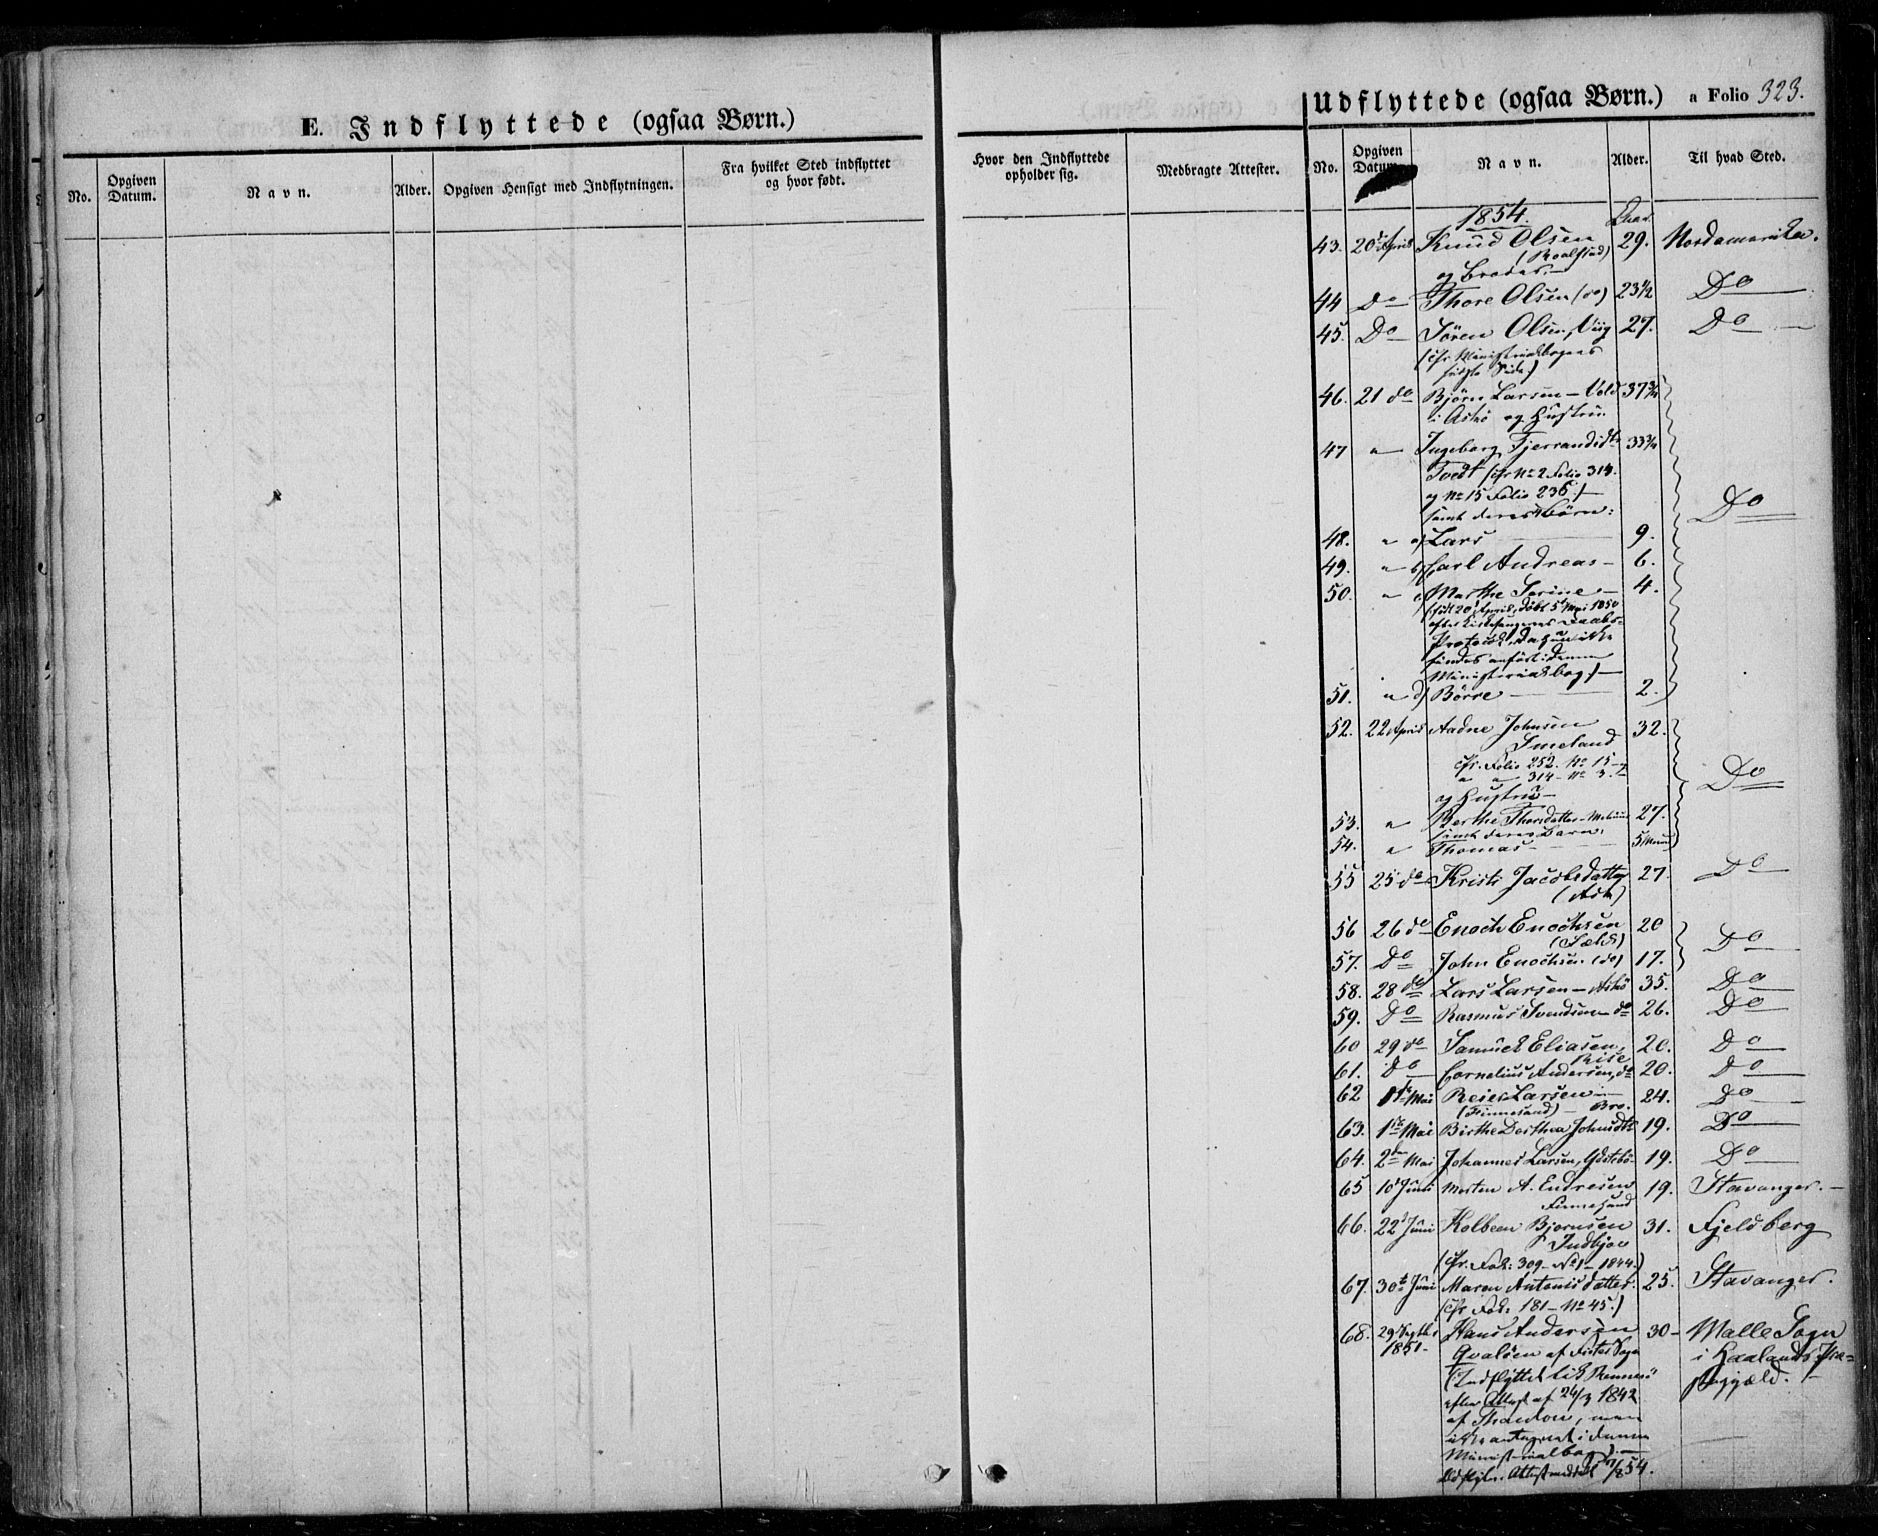 E. Indflyttede (ogsaa Børn.)
No.
Opgiven Datum.
Navn.
Alder.
Opgiven Hensigt med Indflytningen.
Fra hvilket Sted indflyttet
og hvor født.
Hvor den Indflyttede
opholder sig.
Medbragte Attester.
Udflyttede (ogsaa Børn.) a Folio 323.
No.
Opgiven Datum.
Navn.
Alder.
Til hvad Sted.
1854.
43. 20 April Knud Olsen 29. Nordamerika.
og Broder
44 Do Thore Olsen (do) 23 1/2 Do
45. Do Sören Olsen, Viig 27. Do
(cfr. Ministerialbogens
sidste Side)
46. 21 do Björn Larsen - Vold 37 3/4
i Askö og Hustru
47 " Ingeborg Tjerrandsdtr 33 3/4
Tvedt (cfr No 2 Folio 314.
og No 15 Folio 236) Do
samt deres Börn:
48. " a) Lars 9.
49. " b) Carl Andreas 6.
50. " c) Marthe Serine 4.
(født 20 April, döbt 5 Mai 1850
efter Kirkesangerens Daabs-
Protocol, da hun ikke
findes anfört i denne
Ministerialbog)
51. " d) Börre 2.
52. 22 April Aadne Johnsen 32.
Imeland
cfr. Folio 252. No 15
" " 314 - No 3. Do
og Hustru
53. " Berthe Thorsdatter 27.
samt deres Barn:
54. " Thomas 5 Maan
55 25 do Kristi Jacobsdatter 27. Do
(Ask)
56 26 do Enoch Enochsen 20
Do
57. Do John Enochsen (do) 17.
58. 28 do Lars Larsen - Askö 35. Do
59. Do Rasmus Svendsen do 26. Do
60 29 do Samuel Eliasen, 20. Do
Rise
61. Do Cornelius Andersen, do 20. Do
62 1 Mai Reier Larsen 24. Do
(Finnesand) Bro.
63. 1ste Mai Birthe Dorthea Johnsdtr 19. Do
64. 2den Mai Johannes Larsen, Ydstebö 19. Do
65 10 Juni Morten A. Endresen 19. Stavanger.
Finnesand
66. 22 Juni Kolbeen Bjornsen 31. Fjeldberg
Indbjoe
(cfr. Fol: 309 - No 1 - 1844.)
67. 30te Juni Maren Antonisdatter 25. Stavanger.
(cfr Fol: 181 - No 45.)
68. 29 Septbr Hans Andersen 30 Malle Sogn
1851 Qvalöen af Fister Sogn i Haalands Præ-
(Indflyttet til Rennesö stegjæld.
efter Attest af 24/3 1842
af men
ikke antegnet i denne
Ministerialbog).
Attest meddelt 7/8 54.